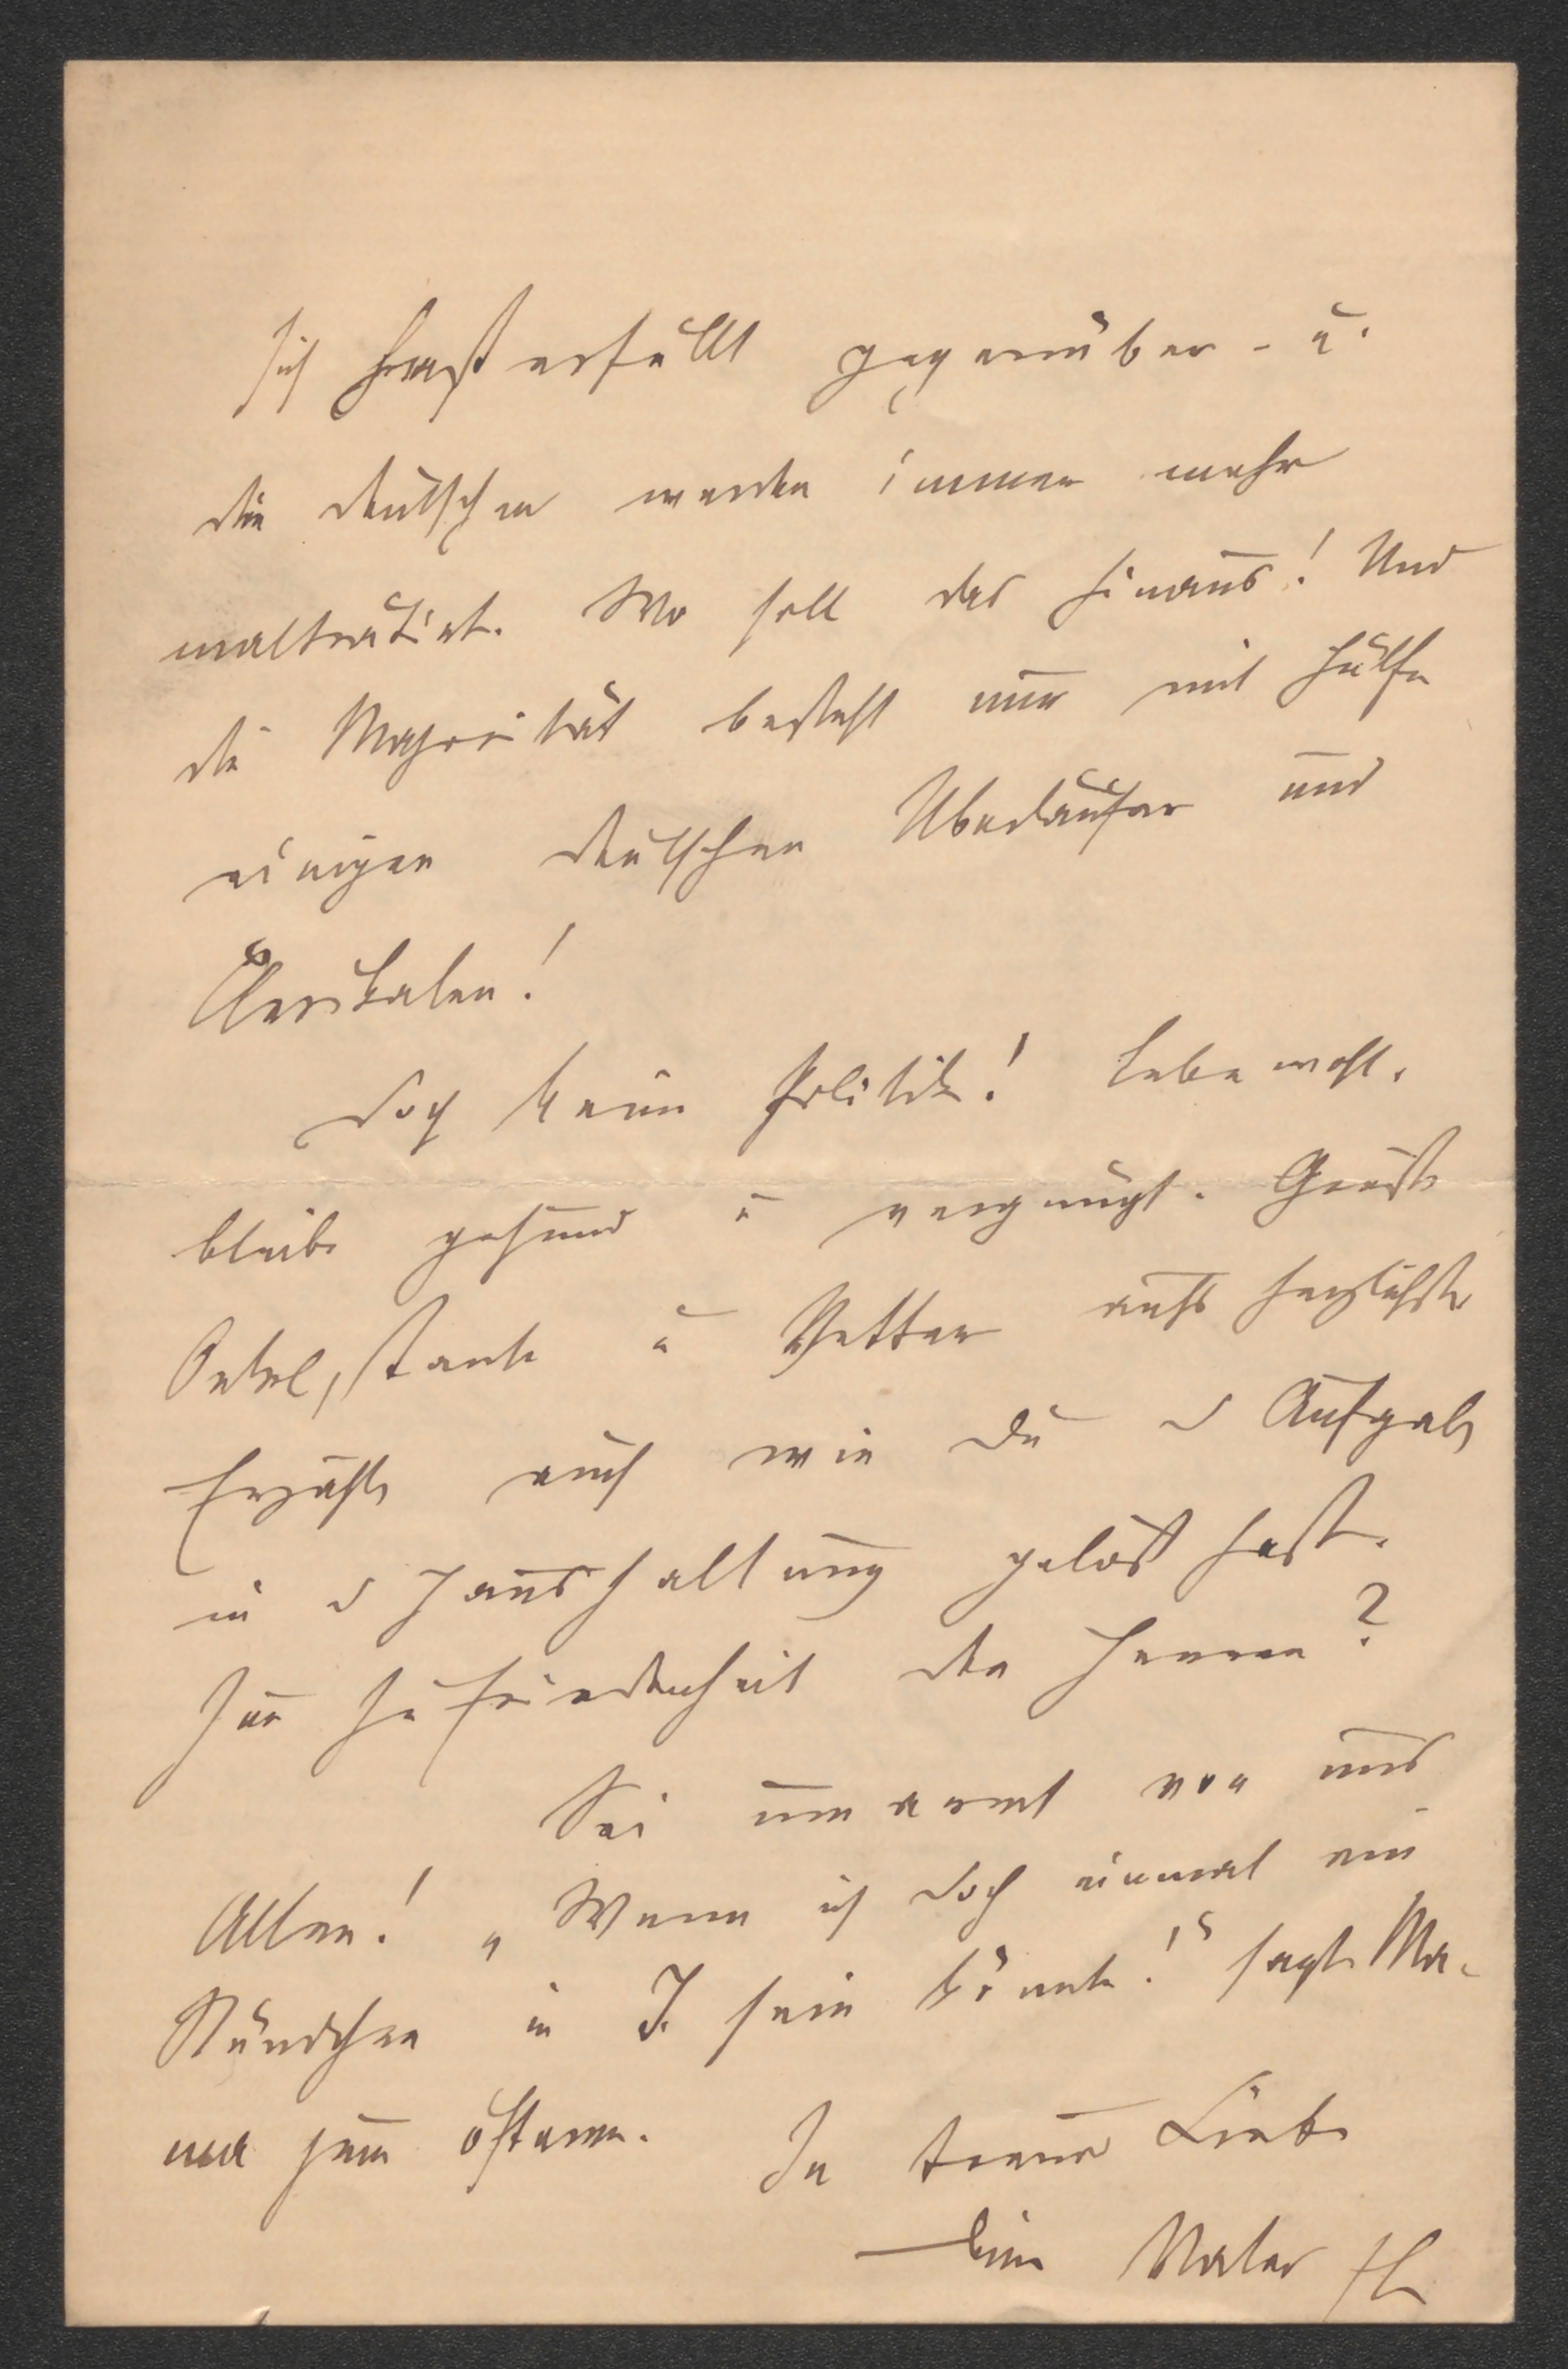 sich hasserfüllt gegenüber - u.
die Deutschen werden immer mehr
malträtirt. Wo soll das hinaus! Und
die Majorität besteht nur mit Hülfe
einiger deutschen Überläufer und
Clerikalen!
Doch keine Politik! Lebe wohl,
bleibe gesund u vergnügt. Grüße
Onkel, Tante u Vetter aufs herzlichste
Erzähle auch wie Du d Aufgabe
in d Haushaltung gelöst hast.
Zur Zufriedenheit der Herren?
Sei umarmt von uns
Allen! „Wenn ich doch einmal ein
Stündchen in J. sein könnte!“ sagt Ma-
ma zum öfteren. In treuer Liebe
Dein Vater